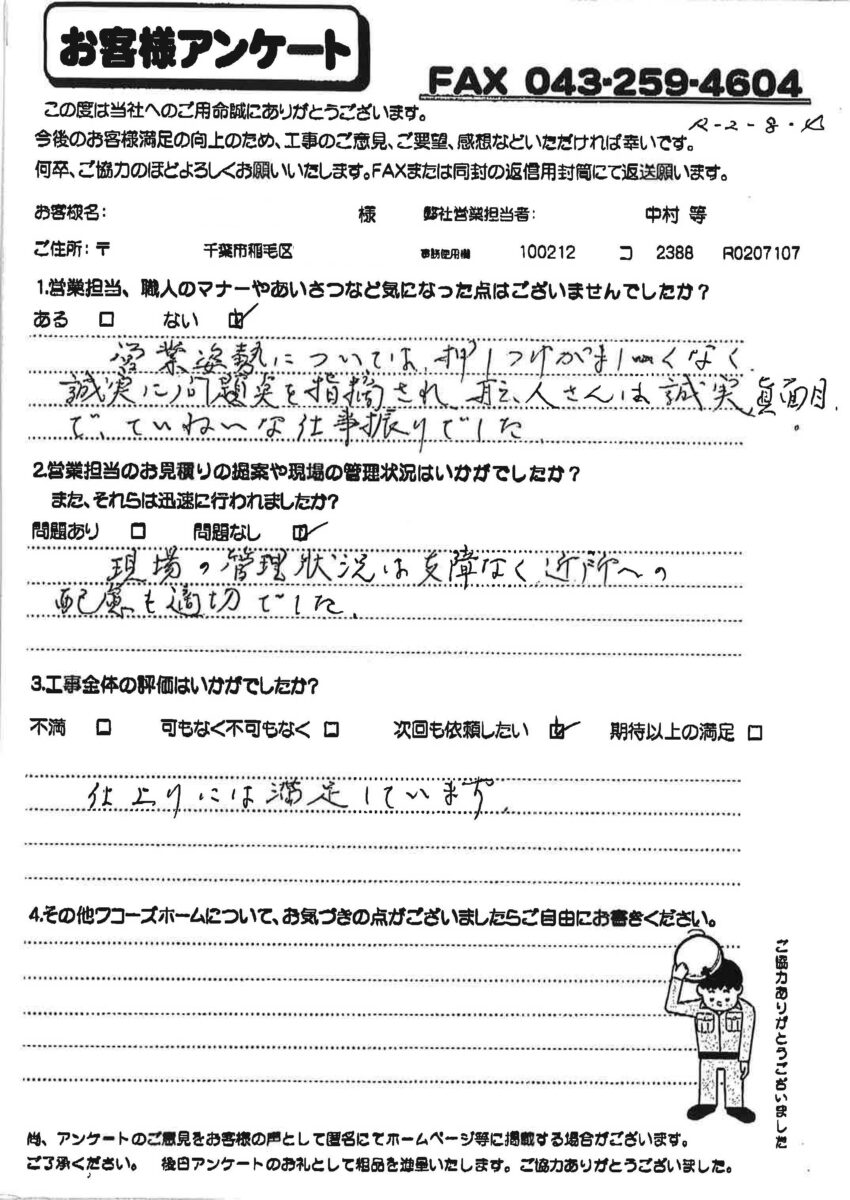 お客様アンケート
FAX 043-259-4604
この度は当社へのご用命誠にありがとうございます。
今後のお客様満足の向上のため、工事のご意見、ご要望、感想などいただければ幸いです。
R-2-8・
何卒、ご協力のほどよろしくお願いいたします。FAXまたは同封の返信用封筒にて返送願います。
お客様名: 様 弊社営業担当者: 中村 等
ご住所:〒 千葉市稲毛区 事務使用欄 100212 コ 2388 R0207107
1.営業担当、職人のマナーやあいさつなど気になった点はございませんでしたか?
ある □ ない ☑
営業姿勢については、押しつけがましくなく
誠実に問題点を指摘され、職人さんは誠実、真面目
で、ていねいな仕事振りでした。
2.営業担当のお見積りの提案や現場の管理状況はいかがでしたか?
また、それらは迅速に行われましたか?
問題あり □ 問題なし ☑
現場の管理状況は支障なく、近所への
配慮も適切でした。
3.工事全体の評価はいかがでしたか?
不満 □ 可もなく不可もなく □ 次回も依頼したい ☑ 期待以上の満足 □
仕上りには満足しています。
4.その他ワコーズホームについて、お気づきの点がございましたらご自由にお書きください。
ご協力ありがとうございました
尚、アンケートのご意見をお客様の声として匿名にてホームページ等に掲載する場合がございます。
ご了承ください。 後日アンケートのお礼として粗品を進呈いたします。ご協力ありがとうございました。